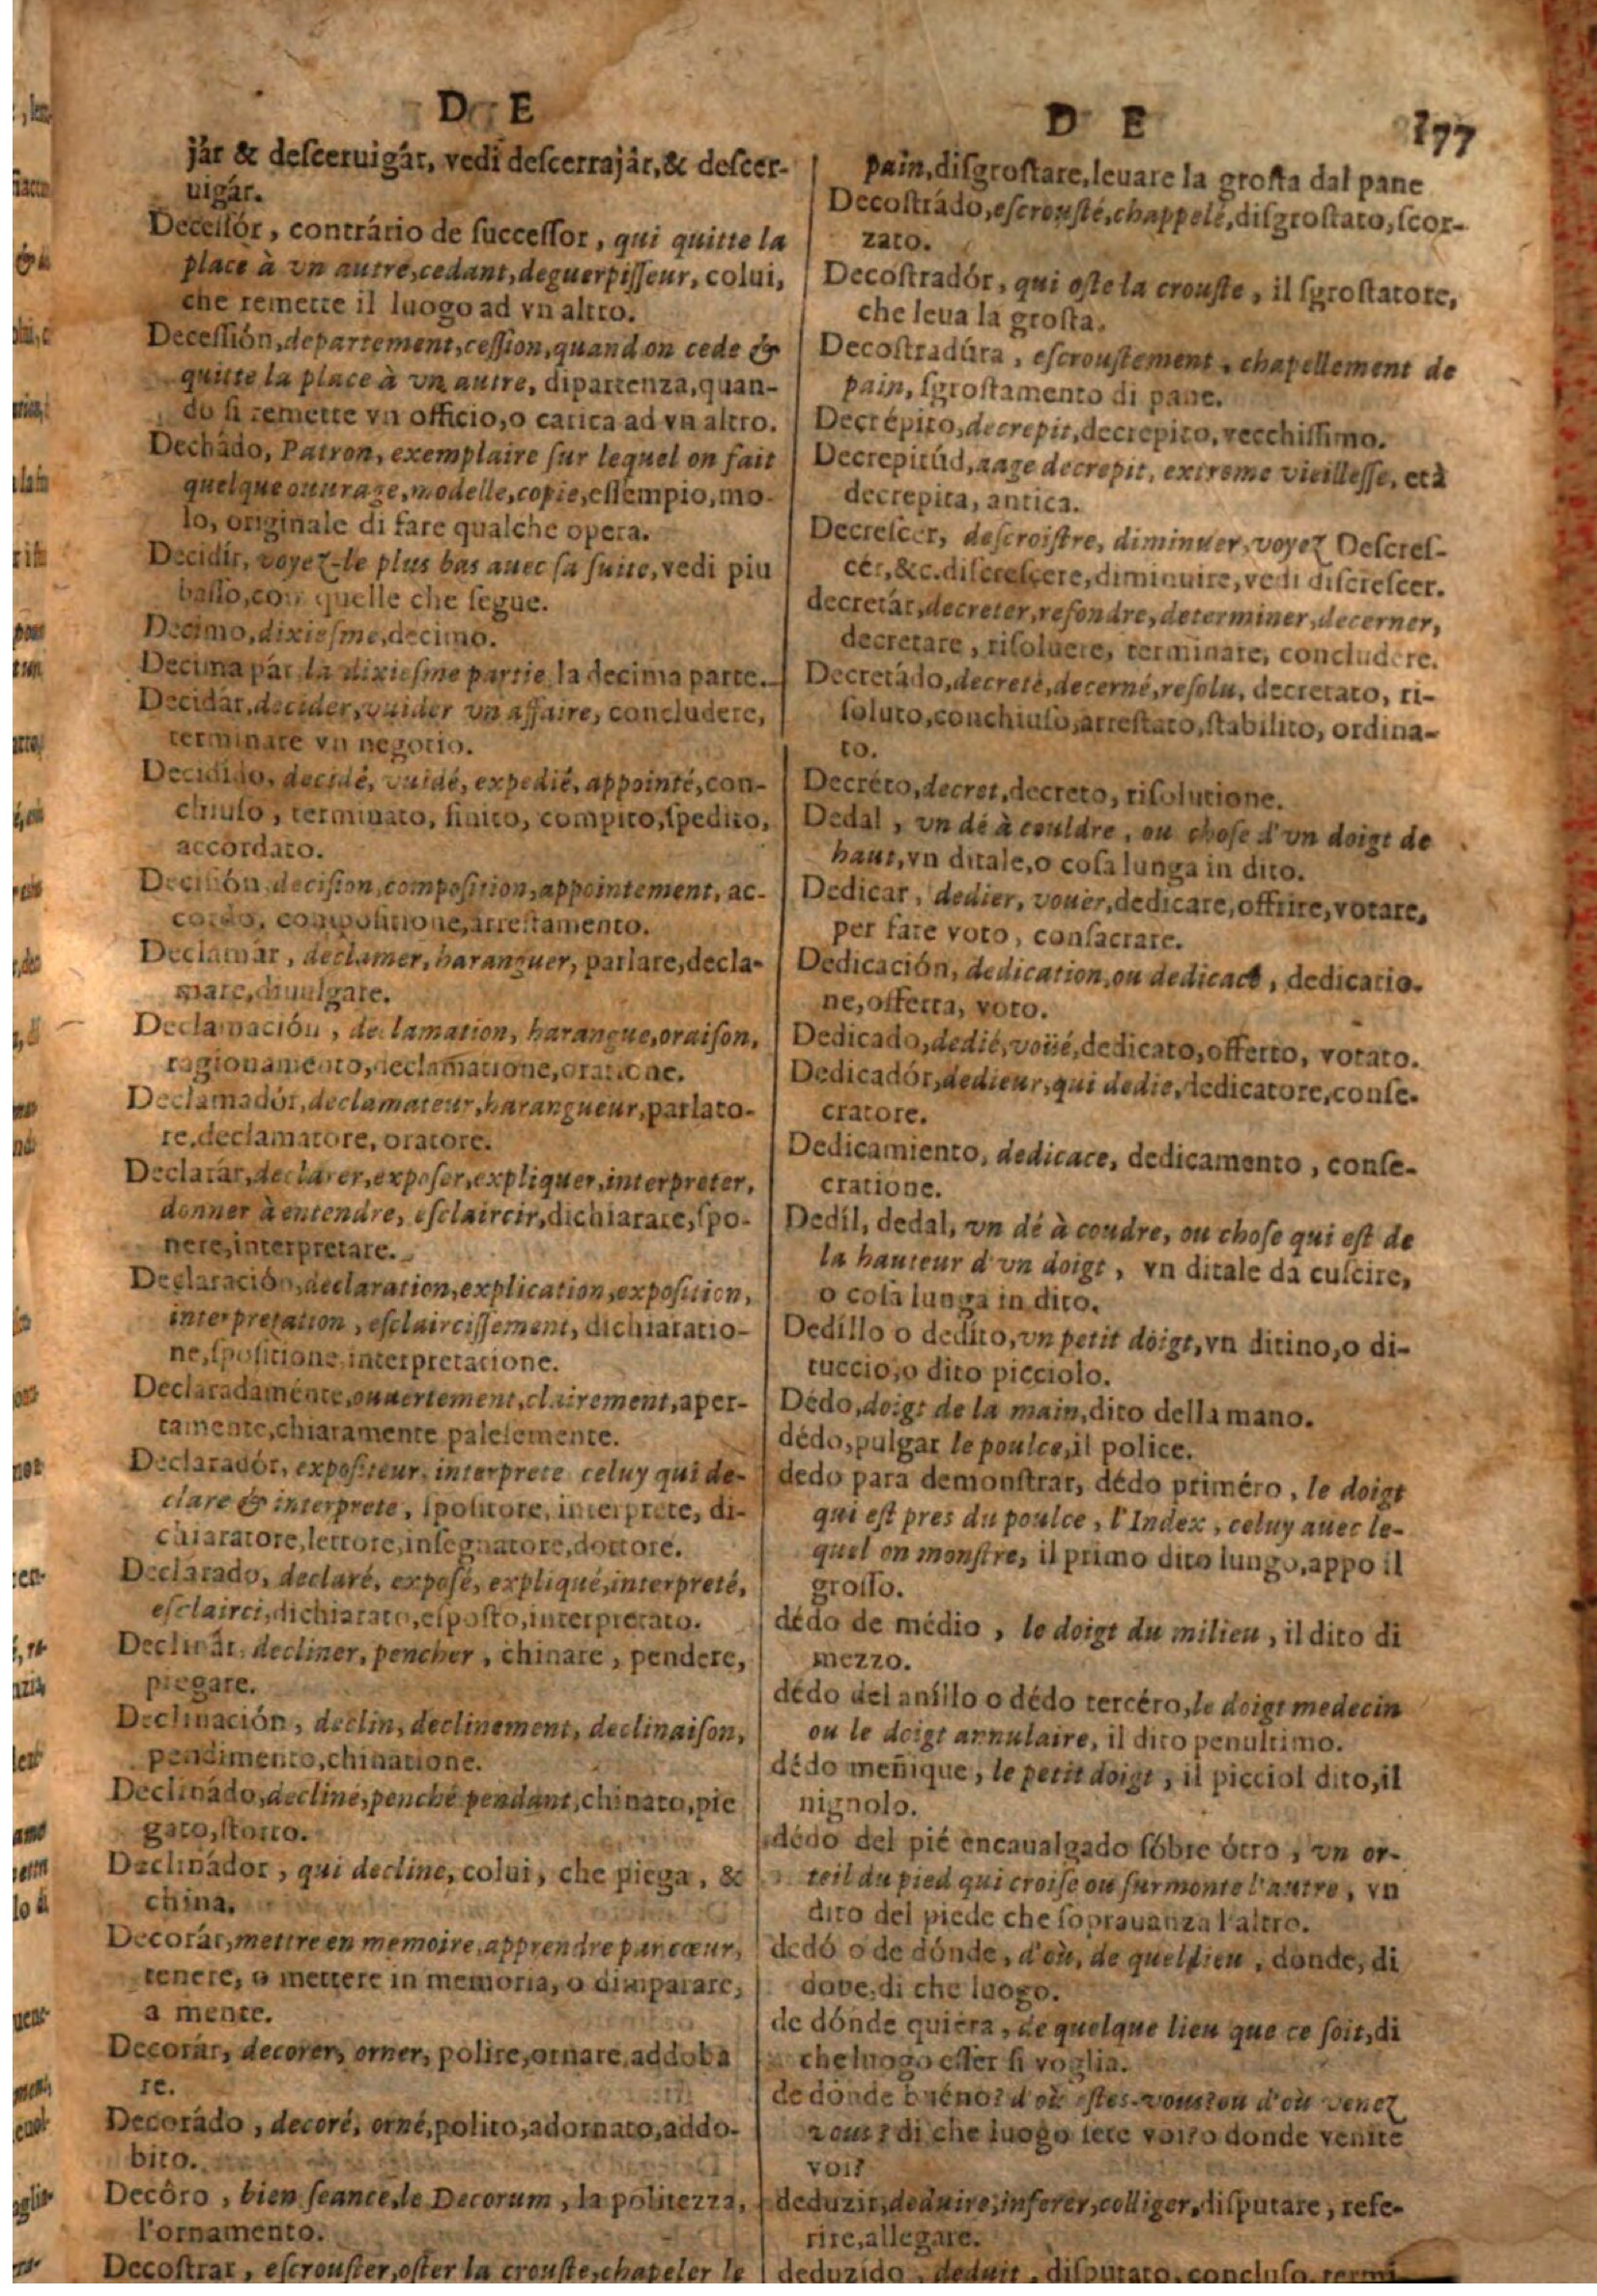 D E
jár & desceruigár, vedi descerrajár, & descer-
uigár.
Decessór, contrário de successor, qui quitte la
place à vn autre, cedant, deguerpisseur, colui,
che remette il luogo ad vn altro.
Decessión, departement, cession, quand on cede &
quitte la place à vn autre, dipartenza, quan-
do si remette vn officio, o carica ad vn altro.
Dechádo, Patron, exemplaire sur lequel on fait
quelque ouurage, modelle, copie, essempio, mo-
lo, originale di fare qualche opera.
Decidír, voyez-le plus bas auec sa suite, vedi piu
basso, con quelle che segue.
Decimo, dixiesme, decimo.
Decima pár la dixiesme partie, la decima parte.
Decidár, decider, vuider vn affaire, concludere,
terminare vn negotio.
Decidido, decidé, vuidé, expedié, appointé, con-
chiuso, terminato, finito, compito, spedito,
accordato.
Decisión, decision, composition, appointement, ac-
cordo, compositione, arrestamento.
Declamár, declamer, haranguer, parlare, decla-
mare, diuulgare.
Declamación, declamation, harangue, oraison,
ragionamento, declamatione, oratione.
Declamadór, declamateur, harangueur, parlato-
re, declamatore, oratore.
Declarár, declarer, exposer, expliquer, interpreter,
donner à entendre, esclaircir, dichiarare, spo-
nere, interpretare.
Declaración, declaration, explication, exposition,
interpretation, esclaircissement, dichiaratio-
ne, spositione, interpretatione.
Declaradaménte, ouuertement, clairement, aper-
tamente, chiaramente palesemente.
Declaradór, expositeur, interprete celuy qui de-
clare & interprete, spositore, interprete, di-
chiaratore, lettore, insegnatore, dottore.
Declárado, declaré, exposé, expliqué, interpreté,
esclairci, dichiarato, esposto, interpretato.
Declinár, decliner, pencher, chinare, pendere,
piegare.
Declinación, declin, declinement, declinaison,
pendimento, chinatione.
Declinádo, decliné, penché pendant, chinato, pie
gato, storto.
Declinádor, qui decline, colui, che piega, &
china.
Decorár, mettre en memoire, apprendre par cœur,
tenere, o mettere in memoria, o dimparare,
a mente.
Decorár, decorer, orner, polire, ornare, addoba
re.
Decorádo, decoré, orné, polito, adornato, addo-
bito.
Decôro, bien seance, le Decorum, la politezza,
l'ornamento.
Decostrar, escrouster, oster la crouste, chapeler le
D E 177
pain, disgrostare, leuare la grosta dal pane
Decostrádo, escrousté, chappelé, disgrostato, scor-
zato.
Decostradór, qui oste la crouste, il sgrostatore,
che leua la grosta.
Decostradúra, escroustement, chapellement de
pain, sgrostamento di pane.
Decrépito, decrepit, decrepito, vecchissimo.
Decrepitúd, aage decrepit, extreme vieillesse, età
decrepita, antica.
Decrescer, descroistre, diminuer, voyez Descres-
cér, &c. discrescere, diminuire, vedi discrescer.
decretár, decreter, resondre, determiner, decerner,
decretare, risoluere, terminare, concludere.
Decretádo, decreté, decerné, resolu, decretato, ri-
soluto, conchiuso, arrestato, stabilito, ordina-
to.
Decréto, decret, decreto, risolutione.
Dedal, vn dé à couldre, ou chose d'vn doigt de
haut, vn ditale, o cosa lunga in dito.
Dedicar, dedier, vouër, dedicare, offrire, votare,
per fare voto, consacrare.
Dedicación, dedication, ou dedicace, dedicatio-
ne, offerta, voto.
Dedicado, dedié, voüé, dedicato, offerto, votato.
Dedicadór, dedieur, qui dedie, dedicatore, conse-
cratore.
Dedicamiento, dedicace, dedicamento, conse-
cratione.
Dedíl, dedal, vn dé à coudre, ou chose qui est de
la hauteur d'vn doigt, vn ditale da cuscire,
o cosa lunga in dito.
Dedíllo o dedíto, vn petit doigt, vn ditino, o di-
tuccio, o dito picciolo.
Dédo, doigt de la main, dito della mano.
dédo, pulgar le poulce, il police.
dedo para demonstrar, dédo priméro, le doigt
qui est pres du poulce, l'Index, celuy auec le-
quel on monstre, il primo dito lungo, appo il
grosso.
dédo de médio, le doigt du milieu, il dito di
mezzo.
dédo del aníllo o dédo tercéro, le doigt medecin
ou le doigt annulaire, il dito penultimo.
dédo meñique, le petit doigt, il picciol dito, il
nignolo.
dédo del pié encaualgado sóbre ótro, vn or-
teil du pied qui croise ou surmonte l'autre, vn
dito del piede che soprauanza l'altro.
dedó o de dónde, d'où, de quel lieu, donde, di
doue, di che luogo.
de dónde quiéra, de quelque lieu que ce soit, di
che luogo esser si voglia.
de donde buéno? d'où estes-vous? ou d'où venez
vous? di che luogo sete voi? o donde venite
voi?
deduzír, deduire, inferer, colliger, disputare, refe-
rire, allegare.
deduzído, deduit, disputato, concluso, termi